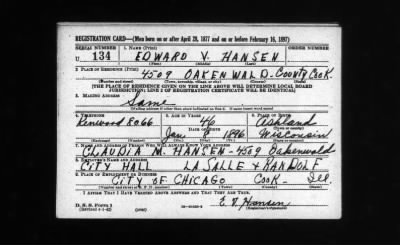 REGISTRATION CARD—(Men born on or after April 28, 1877 and on or before February 16, 1897)
SERIAL NUMBER 1. NAME (Print)
U 134 EDWARD V. HANSEN
(First) (Middle) (Last)
2. PLACE OF RESIDENCE (Print)
4509 OAKENWALD - COUNTY COOK.
(Number and street) (Town, township, village, or city) (County) (State)
[THE PLACE OF RESIDENCE GIVEN ON THE LINE ABOVE WILL DETERMINE LOCAL BOARD
JURISDICTION; LINE 2 OF REGISTRATION CERTIFICATE WILL BE IDENTICAL]
3. MAILING ADDRESS
Same
[Mailing address if other than place indicated on line 2. If same insert word same]
4. TELEPHONE 5. AGE IN YEARS 6. PLACE OF BIRTH
Kenwood 8066 46 Ashland
DATE OF BIRTH
Jan 8 1896 Wisconsin
7. NAME AND ADDRESS OF PERSON WHO WILL ALWAYS KNOW YOUR ADDRESS
CLAUDIA M. HANSEN - 4509 Oakenwald
8. EMPLOYER'S NAME AND ADDRESS
CITY HALL LA SALLE & RANDOLF
9. PLACE OF EMPLOYMENT OR BUSINESS
CITY OF CHICAGO COOK - Ill.
(Number and street or R. F. D. number) (Town) (County) (State)
I AFFIRM THAT I HAVE VERIFIED ABOVE ANSWERS AND THAT THEY ARE TRUE.
D. S. S. Form 1
(Revised 4-1-42) (over)
E V Hansen
(Registrant's signature)